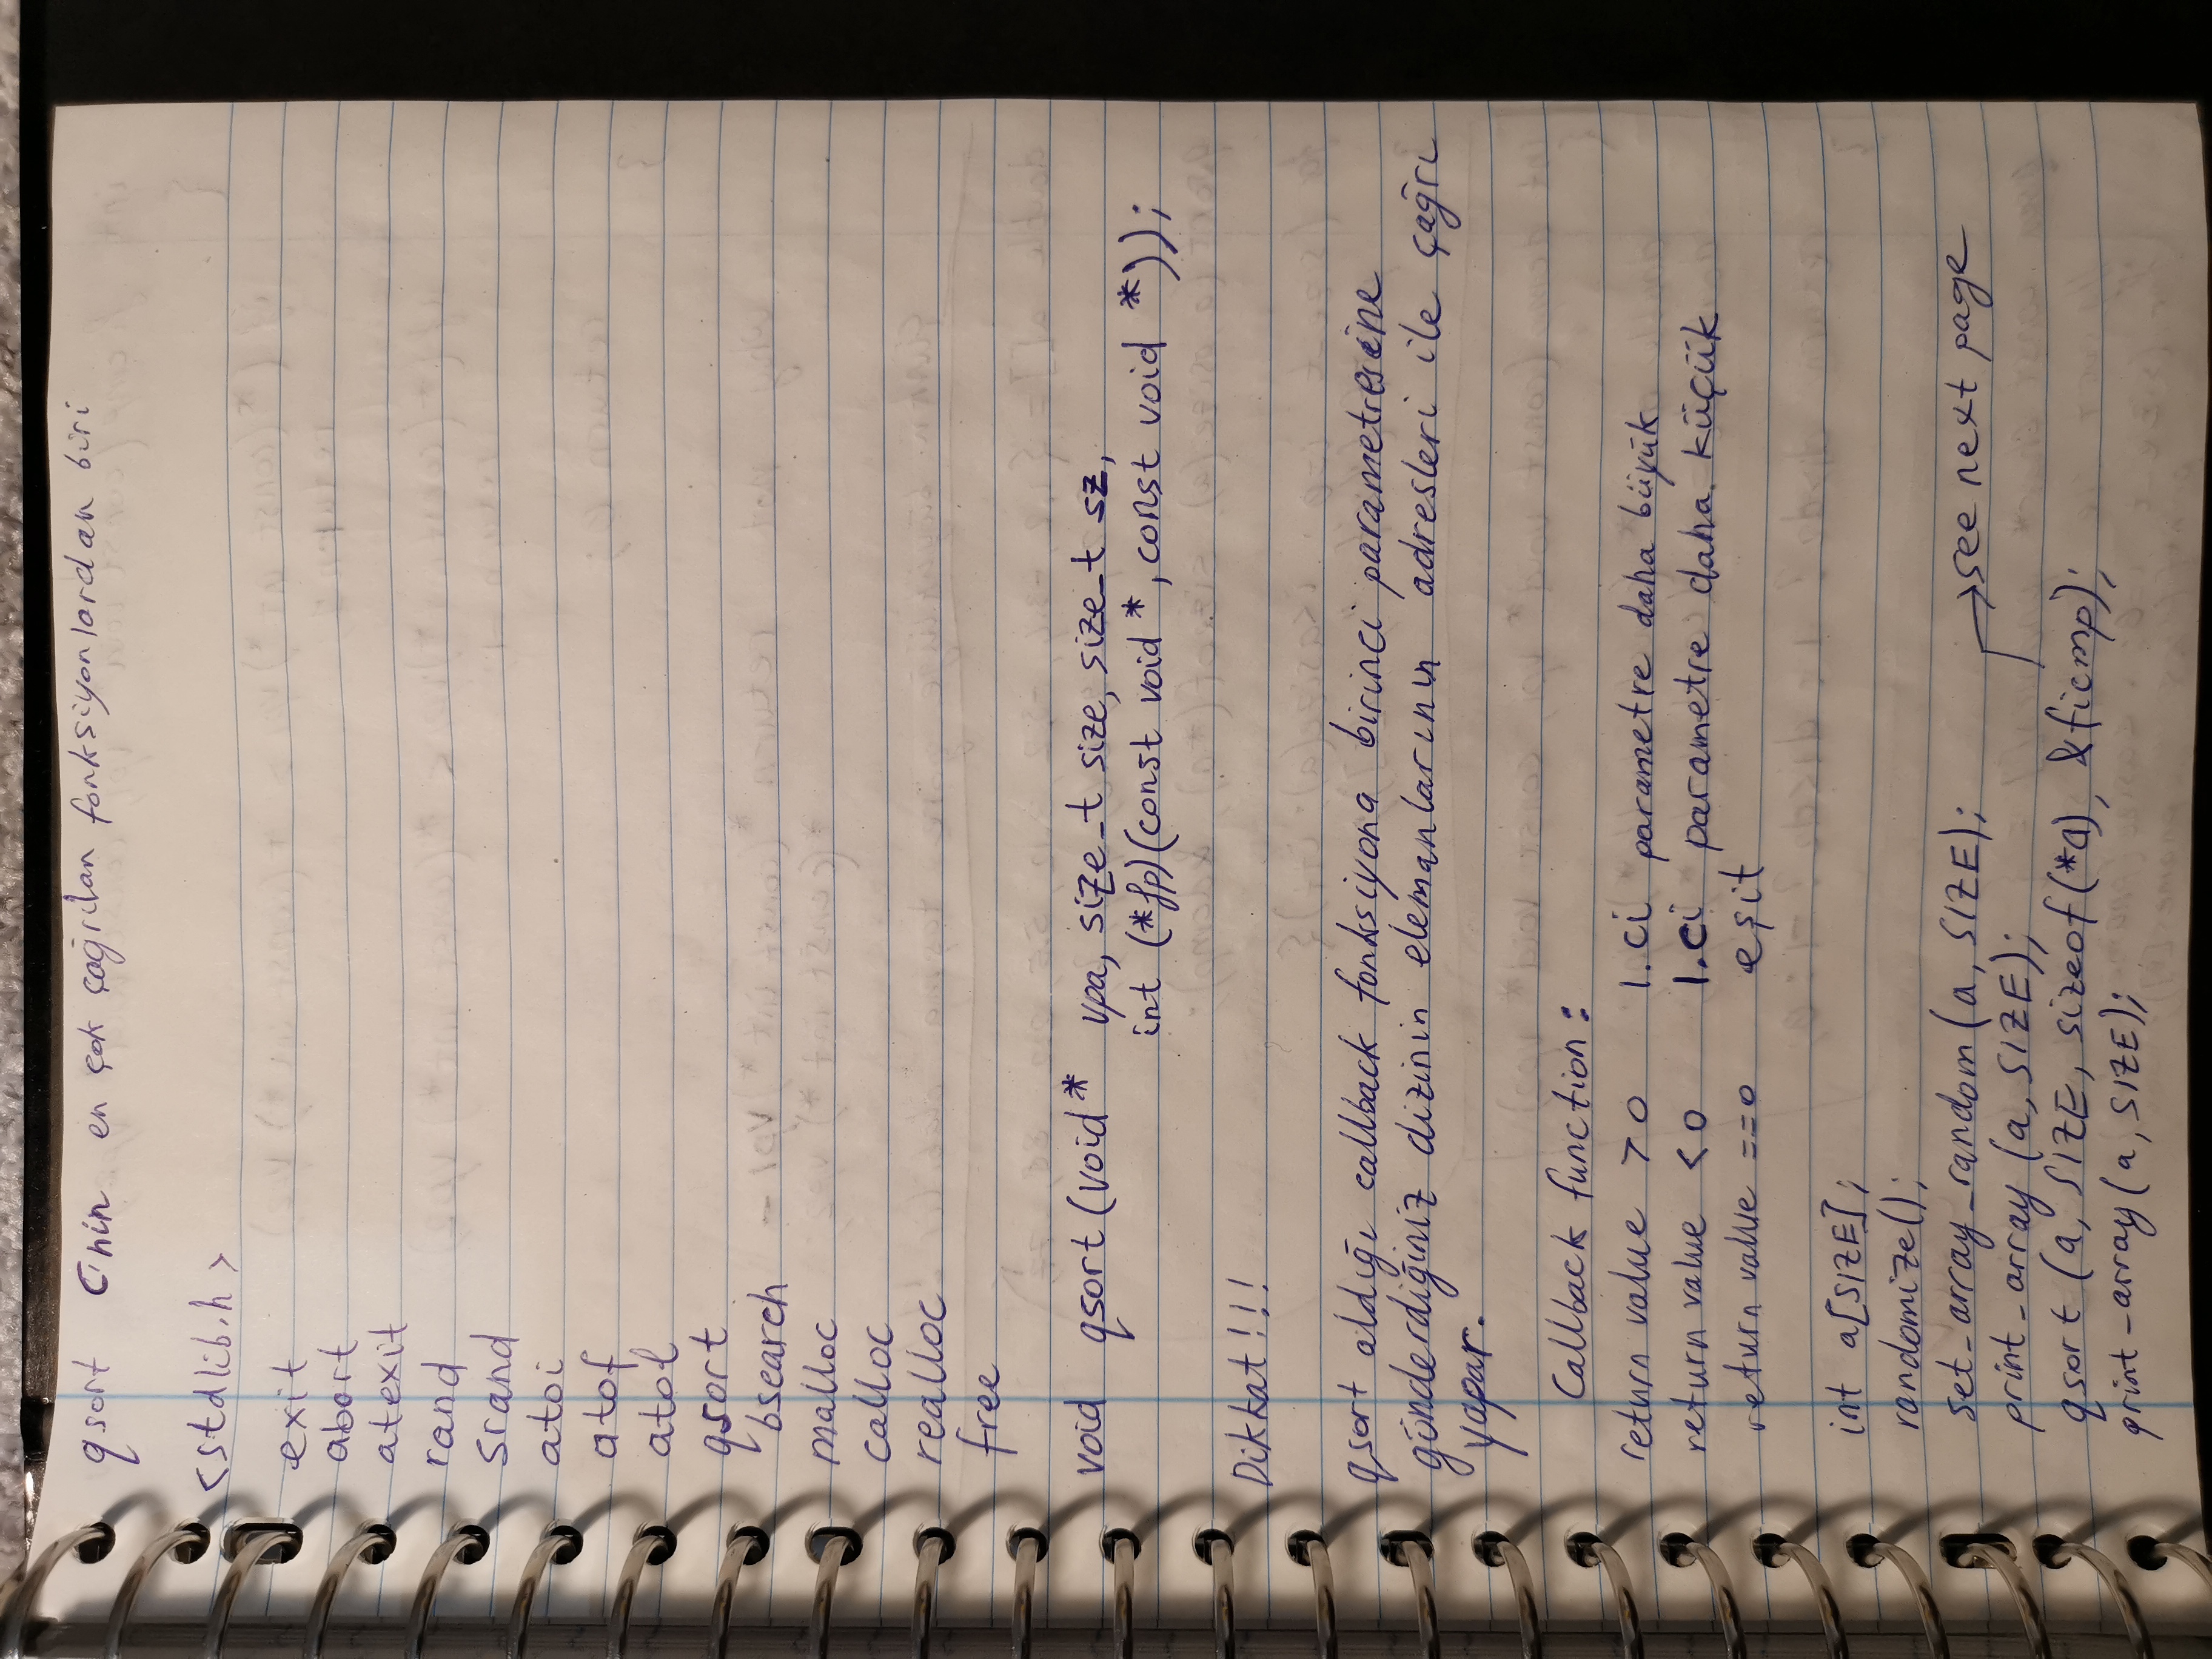 qsort C'nin en çok çağrılan fonksiyonlardan biri
<stdlib.h>
exit
abort
atexit
rand
srand
atoi
atof
atol
qsort
bsearch
malloc
calloc
realloc
free
void qsort(void* vpa, size_t size, size_t sz,
int (*fp)(const void *, const void *));
Dikkat!!!
qsort aldığı callback fonksiyona birinci parametresine
gönderdiğiniz dizinin elemanlarının adresleri ile çağrı
yapar.
Callback function:
return value > 0 1.ci parametre daha büyük
return value < 0 1.ci parametre daha küçük
return value ==0 eşit
int a[SIZE];
randomize();
set_array_random(a, SIZE);
→see next page
print_array (a, SIZE);
qsort (a, SIZE, sizeof(*a), &ficmp);
print_array(a, SIZE);